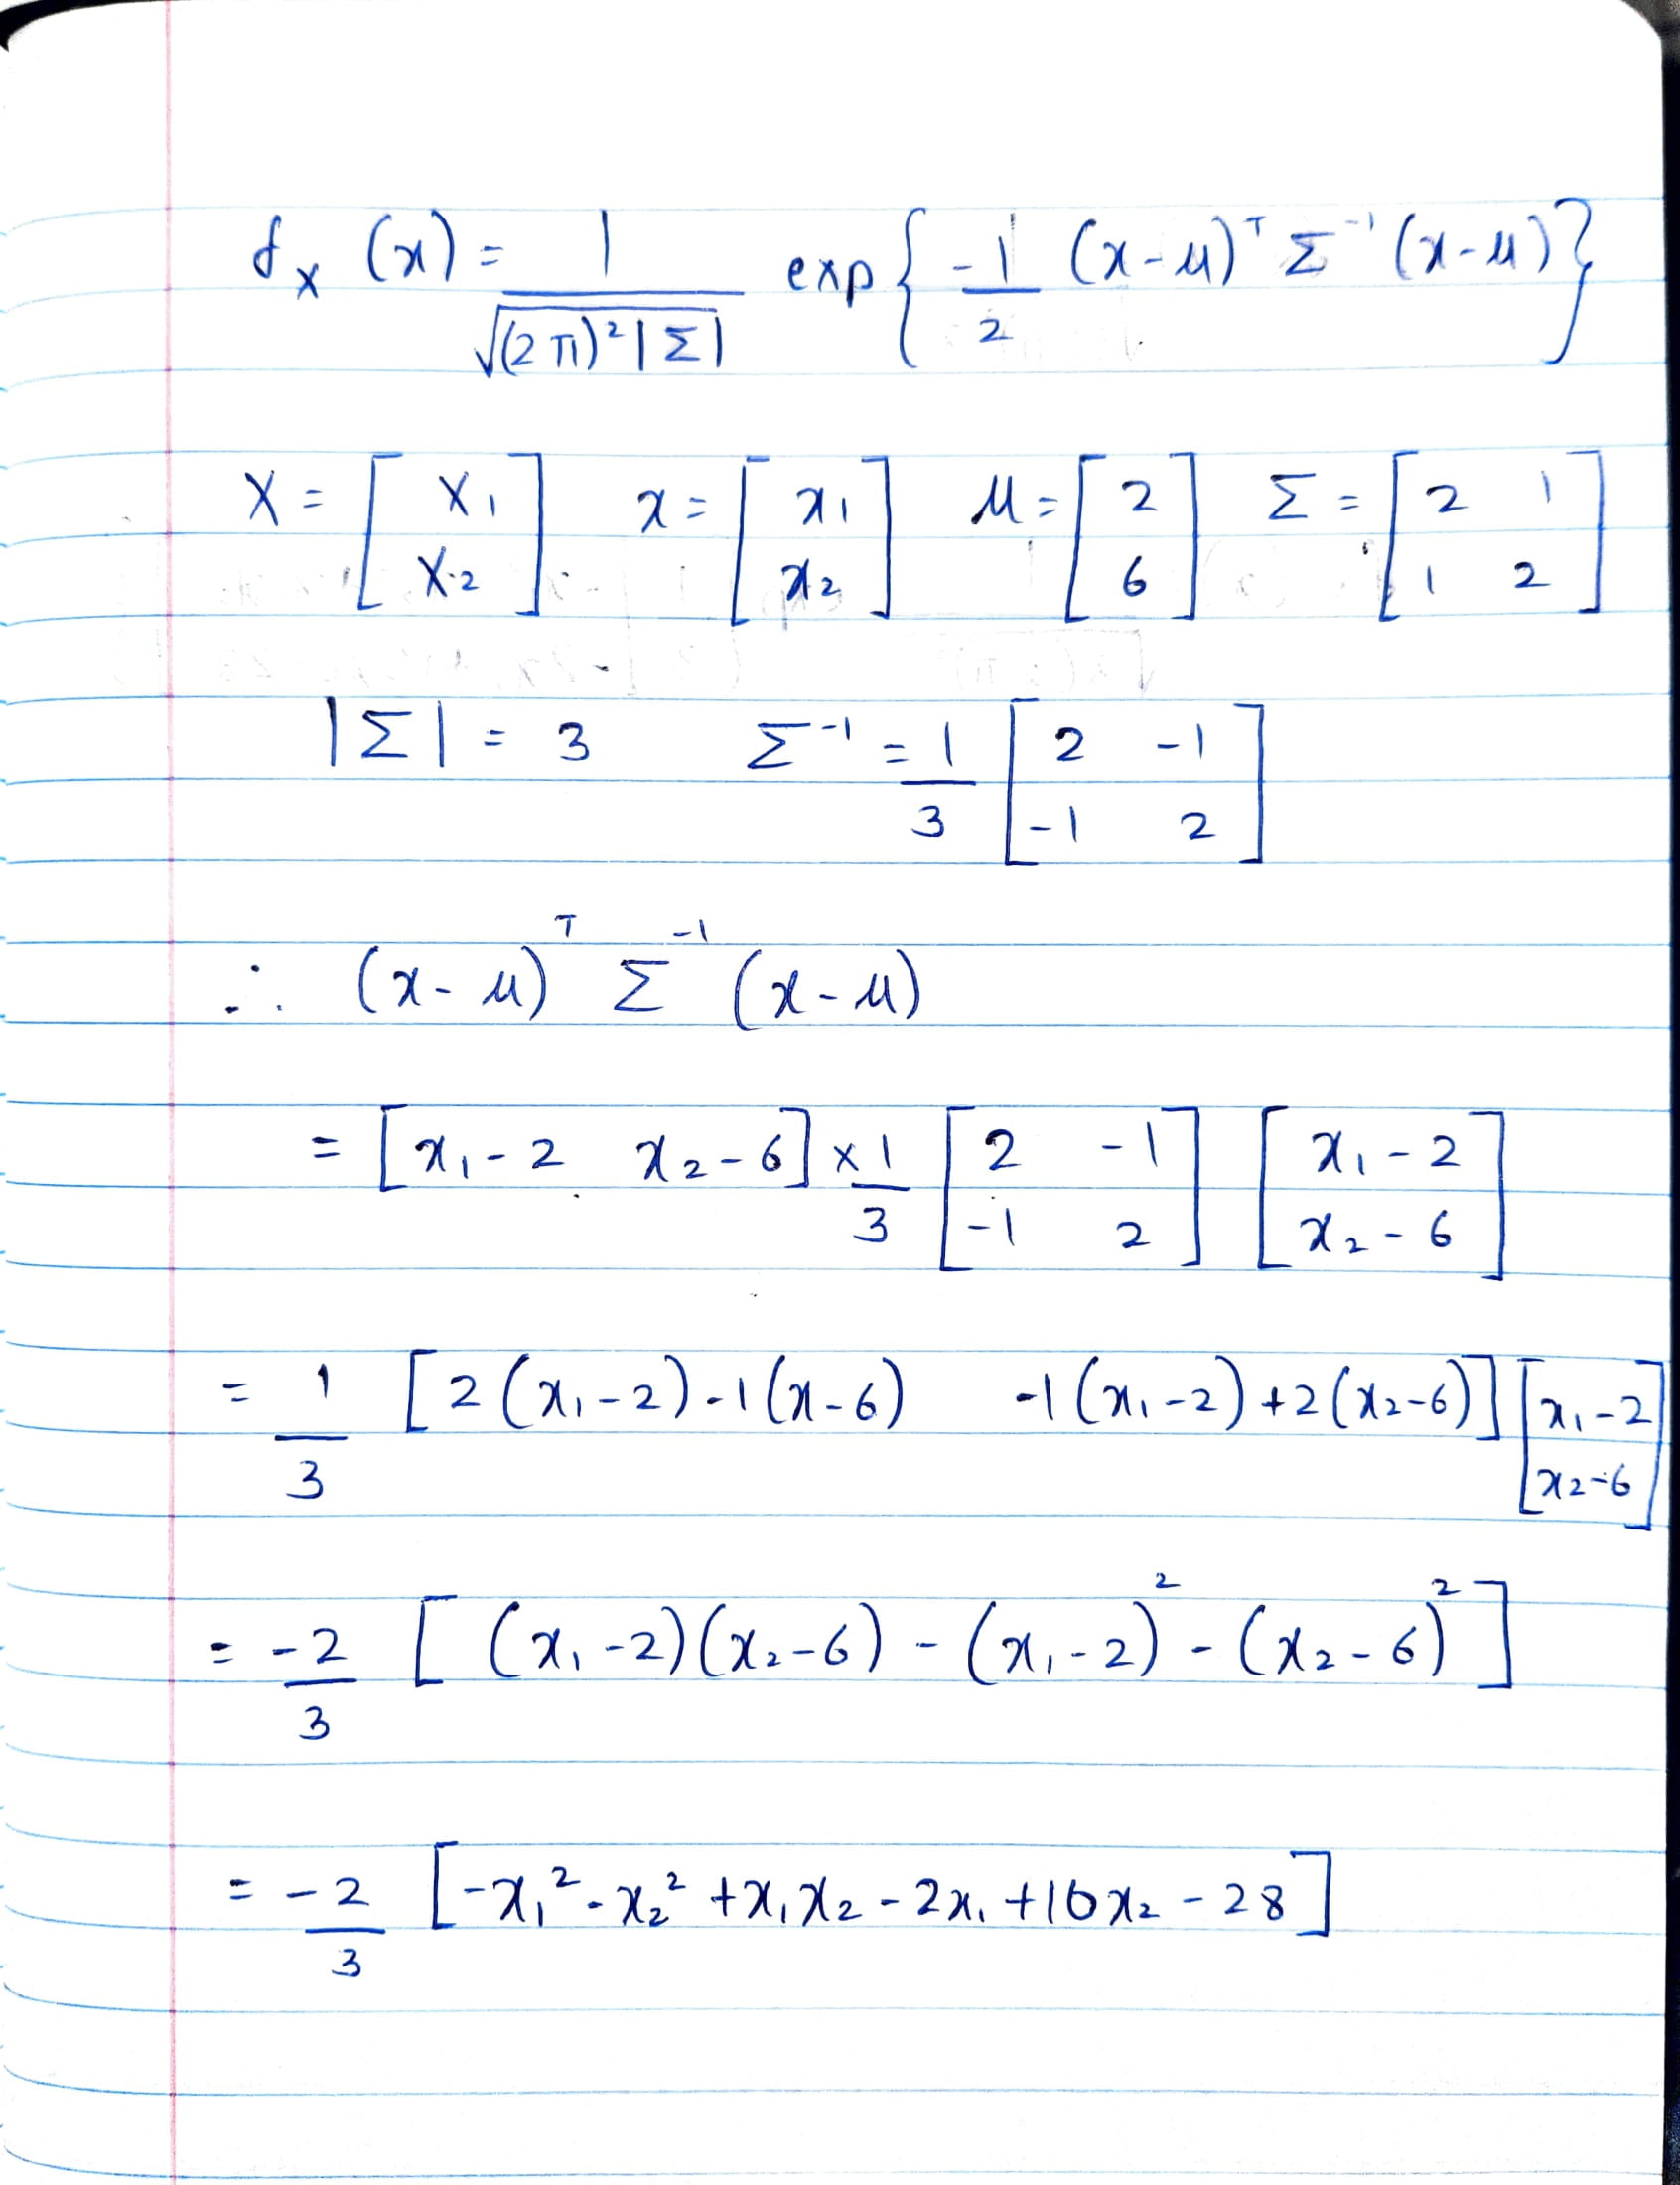 f_X (x) = 1 / √((2π)² |Σ|) exp{ -1/2 (x-μ)ᵀ Σ⁻¹ (x-μ) }
X = [ X₁ ; X₂ ] x = [ x₁ ; x₂ ] μ = [ 2 ; 6 ] Σ = [ 2 1 ; 1 2 ]
|Σ| = 3 Σ⁻¹ = 1/3 [ 2 -1 ; -1 2 ]
∴ (x-μ)ᵀ Σ⁻¹ (x-μ)
= [ x₁-2 x₂-6 ] × 1/3 [ 2 -1 ; -1 2 ] [ x₁-2 ; x₂-6 ]
= 1/3 [ 2(x₁-2)-1(x-6) -1(x₁-2)+2(x₂-6) ] [ x₁-2 ; x₂-6 ]
= -2/3 [ (x₁-2)(x₂-6) - (x₁-2)² - (x₂-6)² ]
= -2/3 [ -x₁² - x₂² + x₁x₂ - 2x₁ + 10x₂ - 28 ]